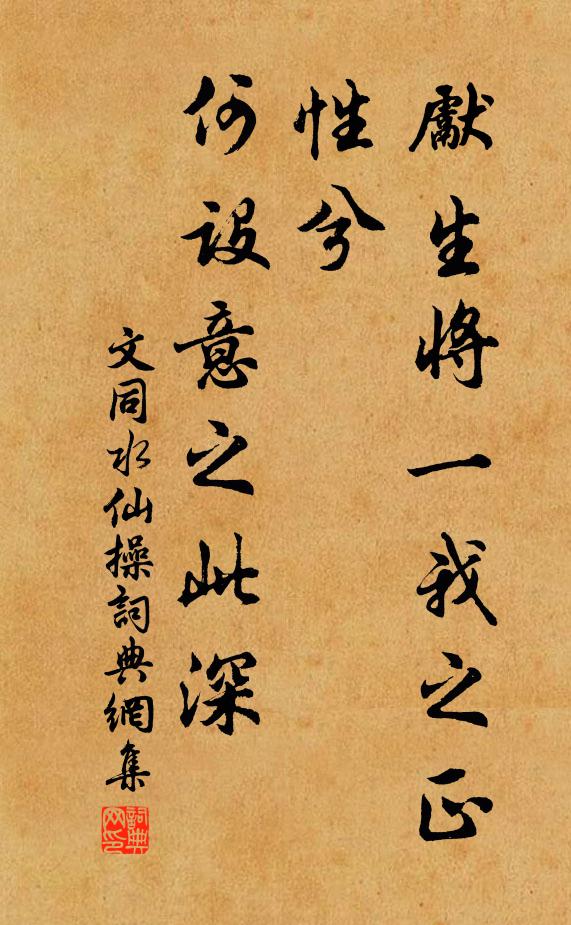 獻生將一我之正
性兮
何設意之此深
文同水仙操詞典網集
詞典网印